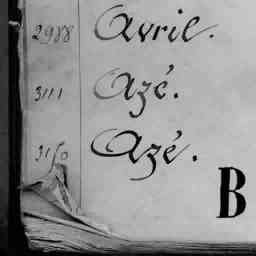 2988 Avril.
3111 Azé.
3150 Azé.
B